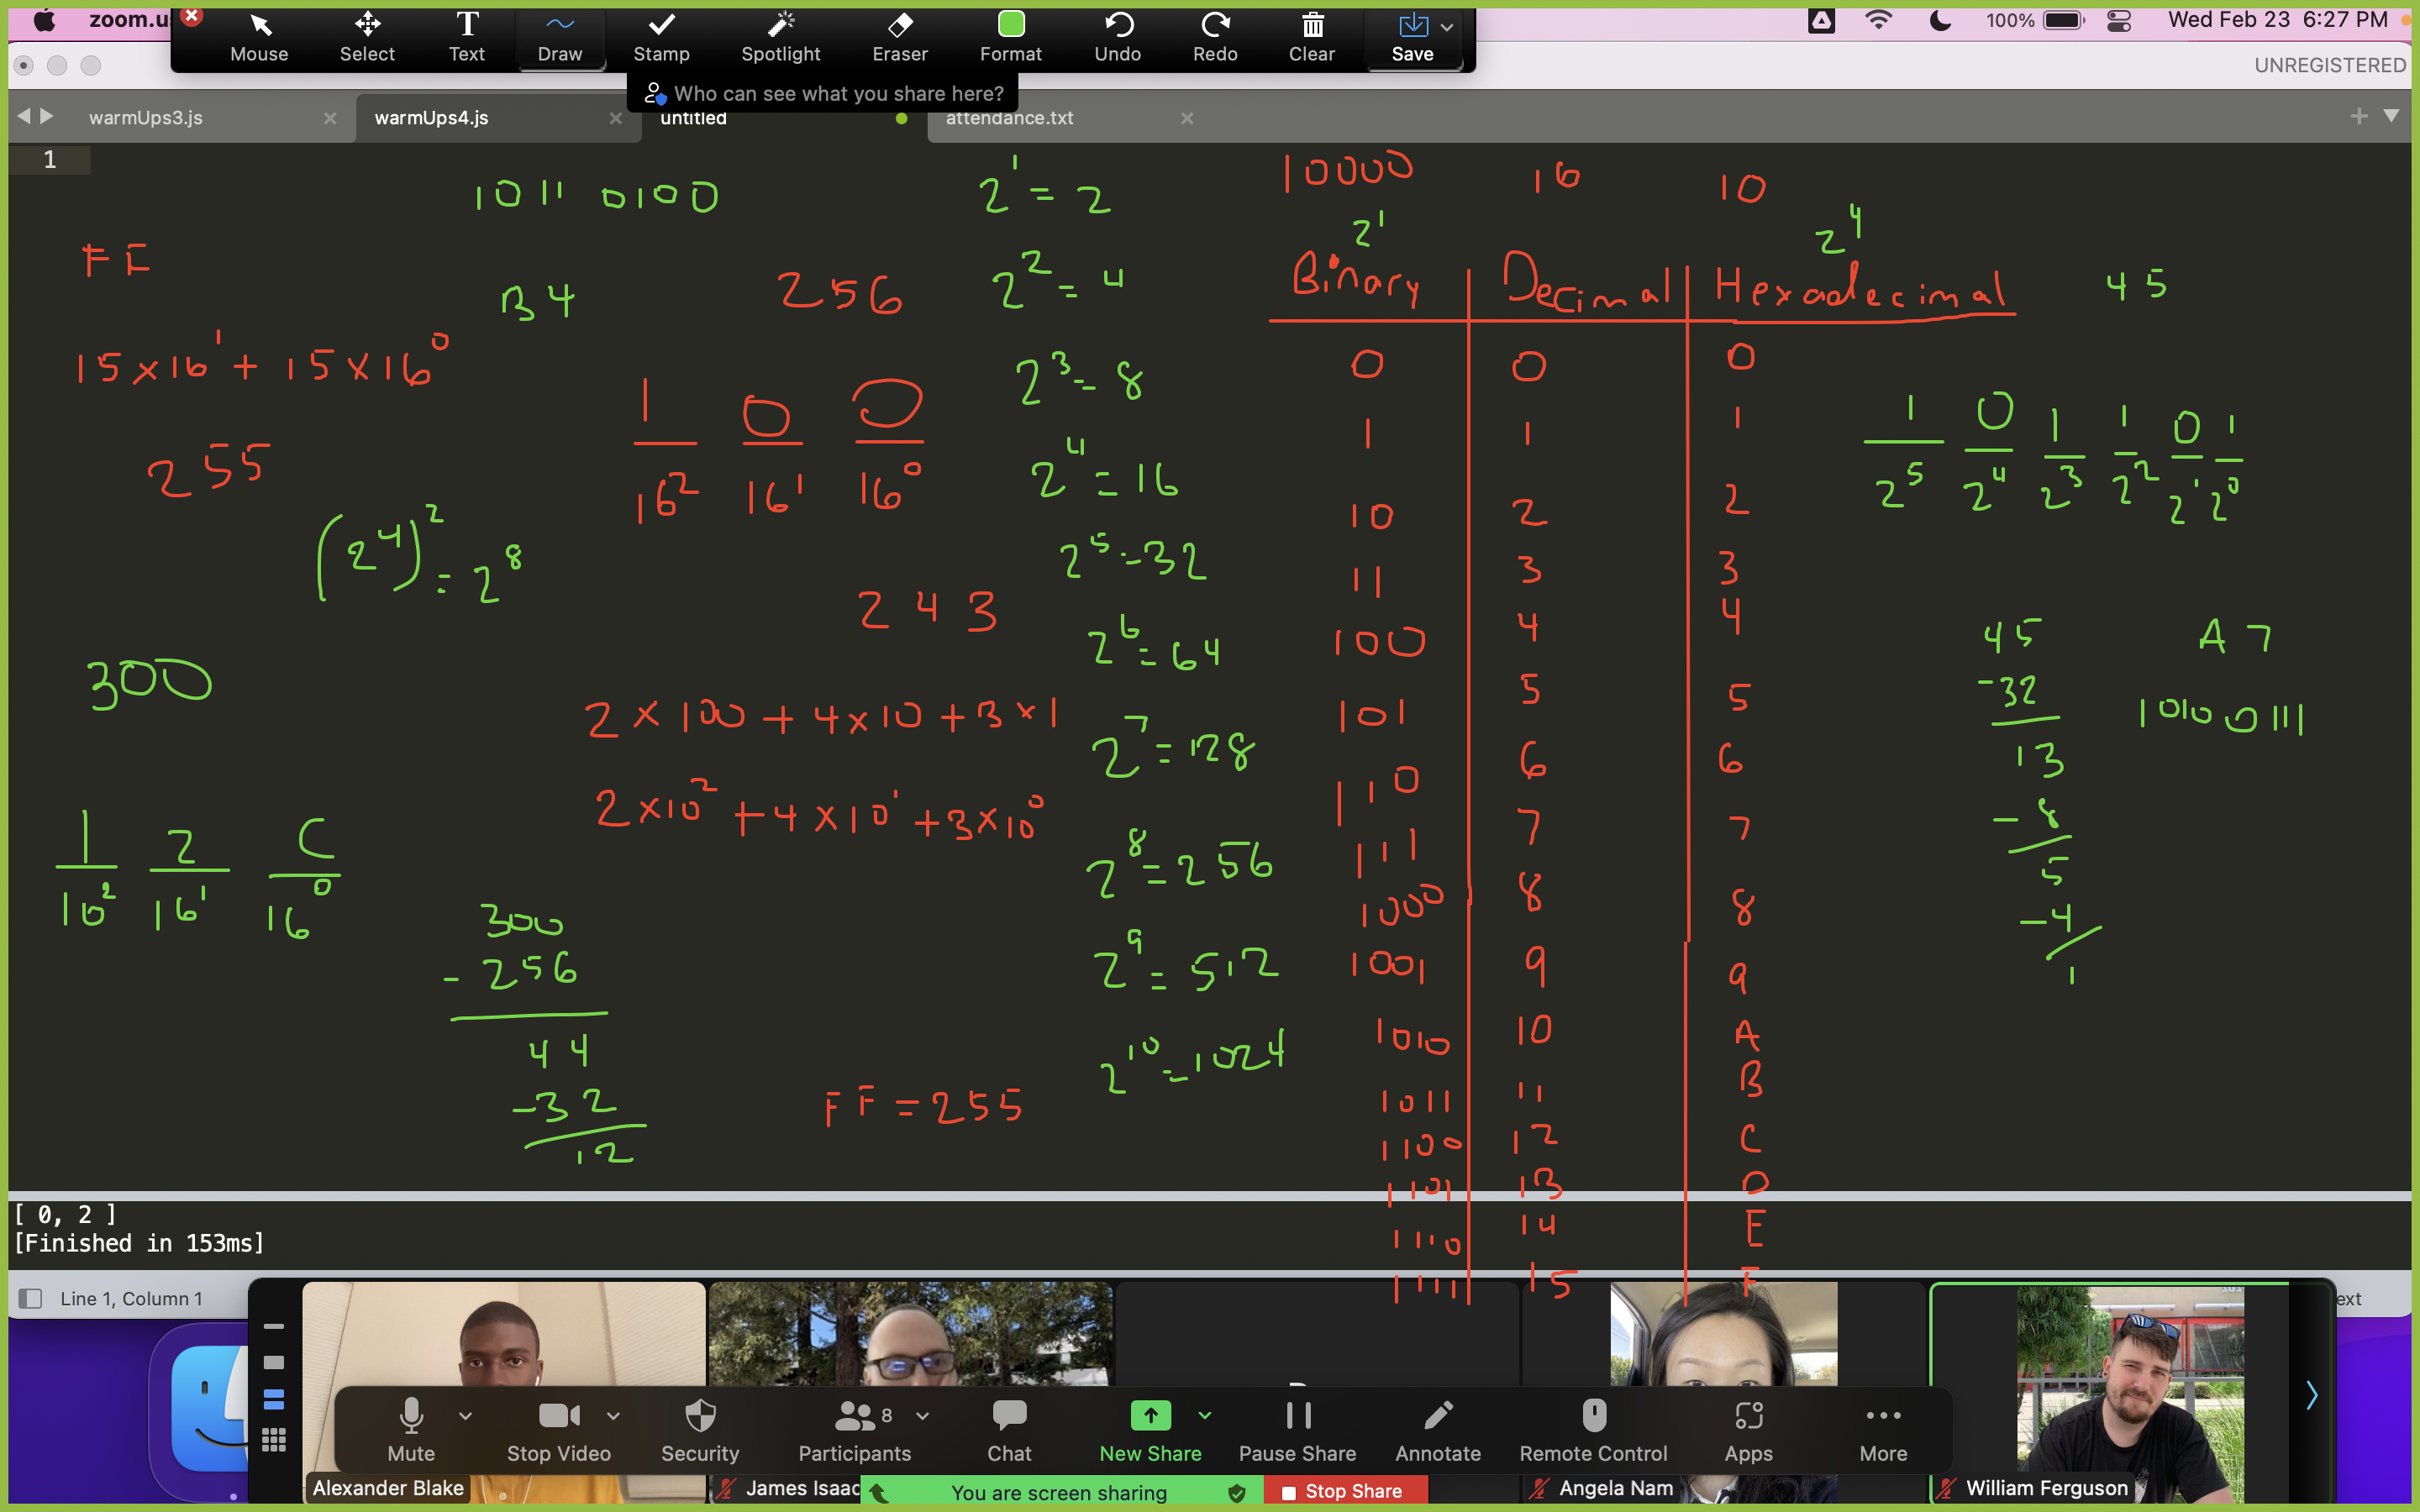 zoom.u
Mouse Select Text Draw Stamp Spotlight Eraser Format Undo Redo Clear Save
100% Wed Feb 23 6:27 PM
UNREGISTERED
Who can see what you share here?
warmUps3.js warmUps4.js untitled attendance.txt
1
1011 0100
FF
B4
15 x 16^1 + 15 x 16^0
255
(2^4)^2 = 2^8
256
1 0 0
16^2 16^1 16^0
243
2 x 100 + 4 x 10 + 3 x 1
2 x 10^2 + 4 x 10^1 + 3 x 10^0
300
1 2 C
16^2 16^1 16^0
300
- 256
44
- 32
12
FF = 255
2^1 = 2
2^2 = 4
2^3 = 8
2^4 = 16
2^5 = 32
2^6 = 64
2^7 = 128
2^8 = 256
2^9 = 512
2^10 = 1024
10000 16 10
2^1 2^4
Binary Decimal Hexadecimal
0 0 0
1 1 1
10 2 2
11 3 3
100 4 4
101 5 5
110 6 6
111 7 7
1000 8 8
1001 9 9
1010 10 A
1011 11 B
1100 12 C
1101 13 D
1110 14 E
1111 15 F
45
1 0 1 1 0 1
2^5 2^4 2^3 2^2 2^1 2^0
45
- 32
13
- 8
5
- 4
1
A7
1010 0111
[ 0, 2 ]
[Finished in 153ms]
Line 1, Column 1
ext
Mute Stop Video Security Participants 8 Chat New Share Pause Share Annotate Remote Control Apps More
Alexander Blake James Isaac Angela Nam William Ferguson
You are screen sharing Stop Share